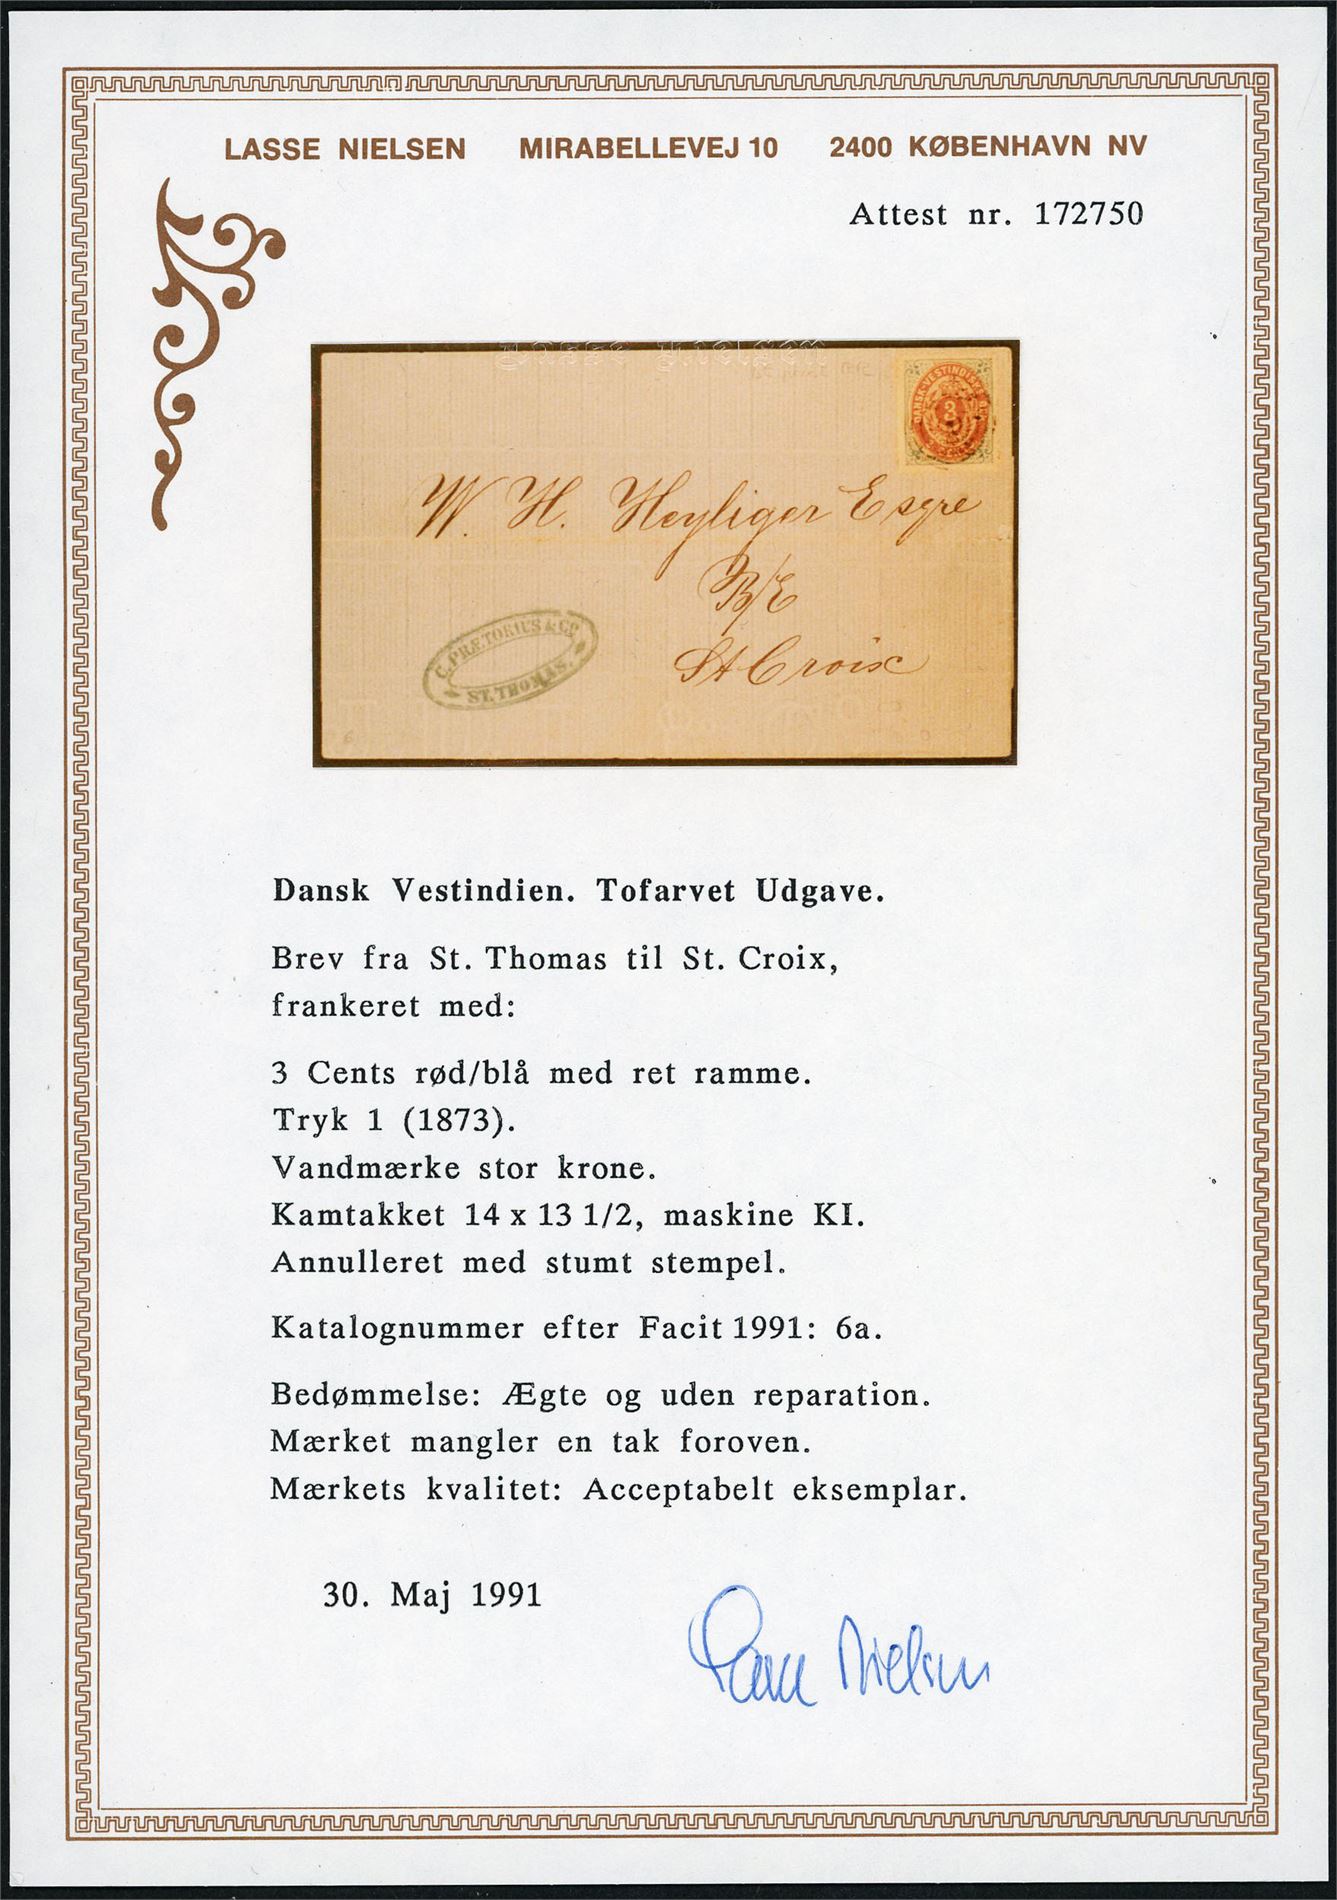 LASSE NIELSEN MIRABELLEVEJ 10 2400 KØBENHAVN NV
Attest nr. 172750
Lasse Nielsen
DANSK-VESTINDISKE
3
W. H. Heyliger Esqre
B/E
St Croix
C. PRÆTORIUS & CO.
ST. THOMAS.
Dansk Vestindien. Tofarvet Udgave.
Brev fra St. Thomas til St. Croix,
frankeret med:
3 Cents rød/blå med ret ramme.
Tryk 1 (1873).
Vandmærke stor krone.
Kamtakket 14 x 13 1/2, maskine KI.
Annulleret med stumt stempel.
Katalognummer efter Facit 1991: 6a.
Bedømmelse: Ægte og uden reparation.
Mærket mangler en tak foroven.
Mærkets kvalitet: Acceptabelt eksemplar.
30. Maj 1991
Lasse Nielsen